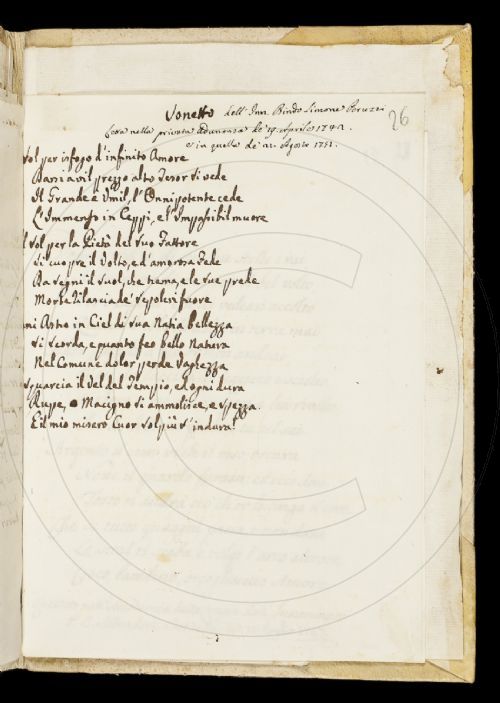 Sonetto dell' Inn. Bindo Simone Peruzzi
26
nella privata Adunanza de 19. Aprile 1742.
e in quella de 12. Agosto 1751.
Sol per isfogo d'infinito Amore
Darsi a vil prezzo alto Tesor si vede
Il Grande è Umil, l'Onnipotente cede
L'Immenso in Ceppi, e l'Impassibil muore
Il Sol per la Pietà del Suo Fattore
Si cuopre il Volto, e d'amorosa Fede
Dà segni il Suol, che trema, e le sue prede
Morte rilancia de' Sepolcri fuore
Ogni Astro in Ciel di sua Natia bellezza
Si scorda, e quanto feo bello Natura
Nel Comune dolor perde Vaghezza
Squarcia il Vel del Tempio, ed ogni dura
Rupe, o Macigno si ammollisce, e spezza.
E il mio misero Cuor vol più s'indura!